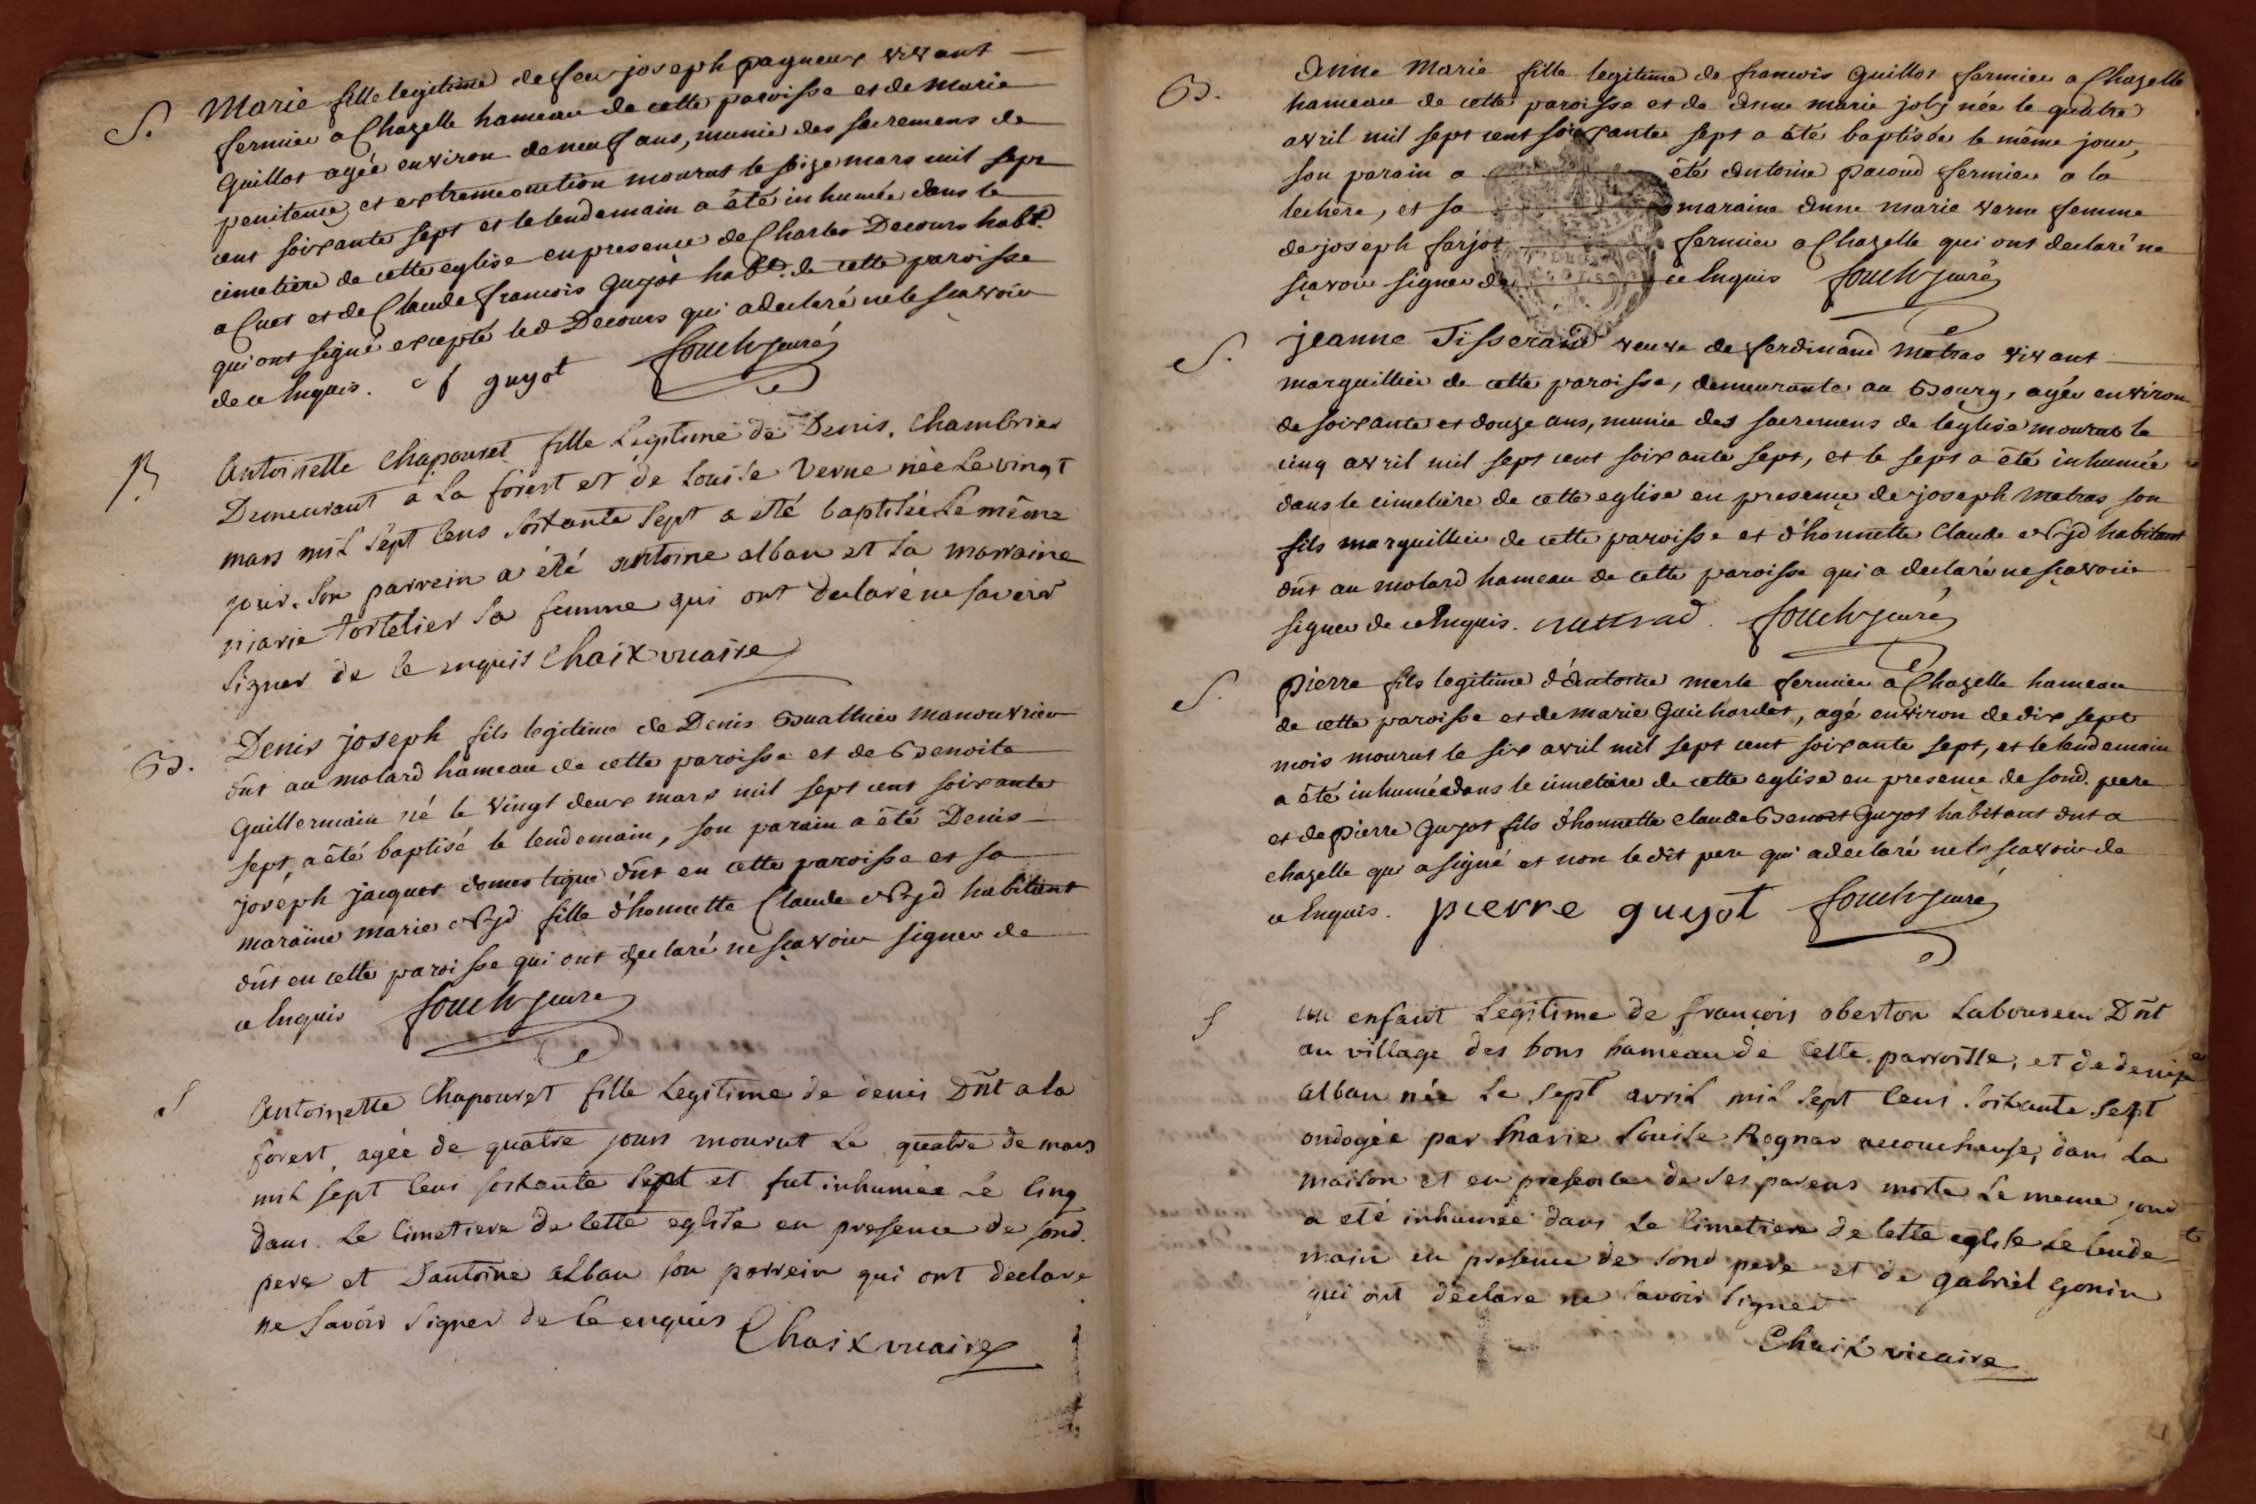 S.
Marie fille legitime de feu joseph pagneux vivant
fermier a Chazelle hameau de cette paroisse et de Marie
Guillot agée environ de neuf ans, munie des sacremens de
penitence et extremeonction mourut le seize mars mil sept
cent soixante sept et le lendemain a été inhumée dans le
cimetiere de cette eglise en presence de Charles Decours habt.
a Cuet et de Claude francois Guyot habt. de cette paroisse
qui ont signé excepté led Decours qui a declaré ne le sçavoir
de ce Enquis. c f guyot
B
Antoinette Chapouret fille Legitime de Denis. Chambrier
Demeurant a La forest et de Louise Verne née Le vingt
mars mil Sept Cens Soixante Sept a été baptisée Le même
jour. Son parrein a été antoine alban et Sa marraine
marie tortelier Sa femme qui ont declaré ne savoir
Signer de Ce enquis Chaix vicaire
B.
Denis joseph fils legitime de Denis Buathier manouvrier
dnt au molard hameau de cette paroisse et de Benoite
Guillermain né le vingt deux mars mil sept cent soixante
sept, a été baptisé le lendemain, son parain a été Denis
joseph jacquet domestique dnt en cette paroisse et sa
maraine marie fille d'honnette Claude habitant
dnt en cette paroisse qui ont declaré ne sçavoir signer de
ce Enquis
S
Antoinette Chapouret fille Legitime de denis Dnt a la
forest, agée de quatre jours mourut Le quatre de mars
mil sept Cens soixante Sept et fut inhumée Le Cinq
dans Le Cimetiere de Cette eglise en presence de sond.
pere et D'antoine alban son parrein qui ont declaré
ne Savoir Signer de Ce enquis Chaix vicaire
B.
Anne Marie fille legitime de francois Guillot fermier a Chazelle
hameau de cette paroisse et de anne marie joly née le quatre
avril mil sept cent soixante sept a été baptisée le même jour,
son parain a été Antoine pacoud fermier a la
lechere, et sa maraine anne marie verne femme
de joseph farjot fermier a Chazelle qui ont declaré ne
sçavoir signer de ce Enquis
S.
jeanne Tisserand veuve de ferdinand Matras vivant
marguillier de cette paroisse, demeurante au Bourg, agée environ
de soixante et douze ans, munie des sacremens de leglise mourut le
cinq avril mil sept cent soixante sept, et le sept a été inhumée
dans le cimetiere de cette eglise en presence de joseph Matras son
fils marguillier de cette paroisse et d'honnette Claude habitant
dnt au molard hameau de cette paroisse qui a declaré ne sçavoir
signer de ce Enquis.
S.
pierre fils legitime d'Antoine merle fermier a Chazelle hameau
de cette paroisse et de marie Guichardet, agé environ de dix sept
mois mourut le six avril mil sept cent soixante sept, et le lendemain
a été inhumé dans le cimetiere de cette eglise en presence de sond. pere
et de pierre Guyot fils d'honnette Claude Benoit Guyot habitant dnt a
chazelle qui a signé et non le dit pere qui a declaré ne le scavoir de
ce Enquis. pierre guyot
S
un enfant Legitime de françois oberton Laboureur Dnt
au village des bons hameau de Cette parroisse, et de denise
alban née Le Sept avril mil Sept Cens Soixante Sept
ondoyée par marie Louise Rognar accoucheuse, dans La
maison et en presence de Ses parens morte Le meme jour
a eté inhumée dans Le Cimetiere de Cette eglise Le lende
main en presence de Sond pere et de gabriel gonin
qui ont declare ne Savoir Signer
Chaix vicaire